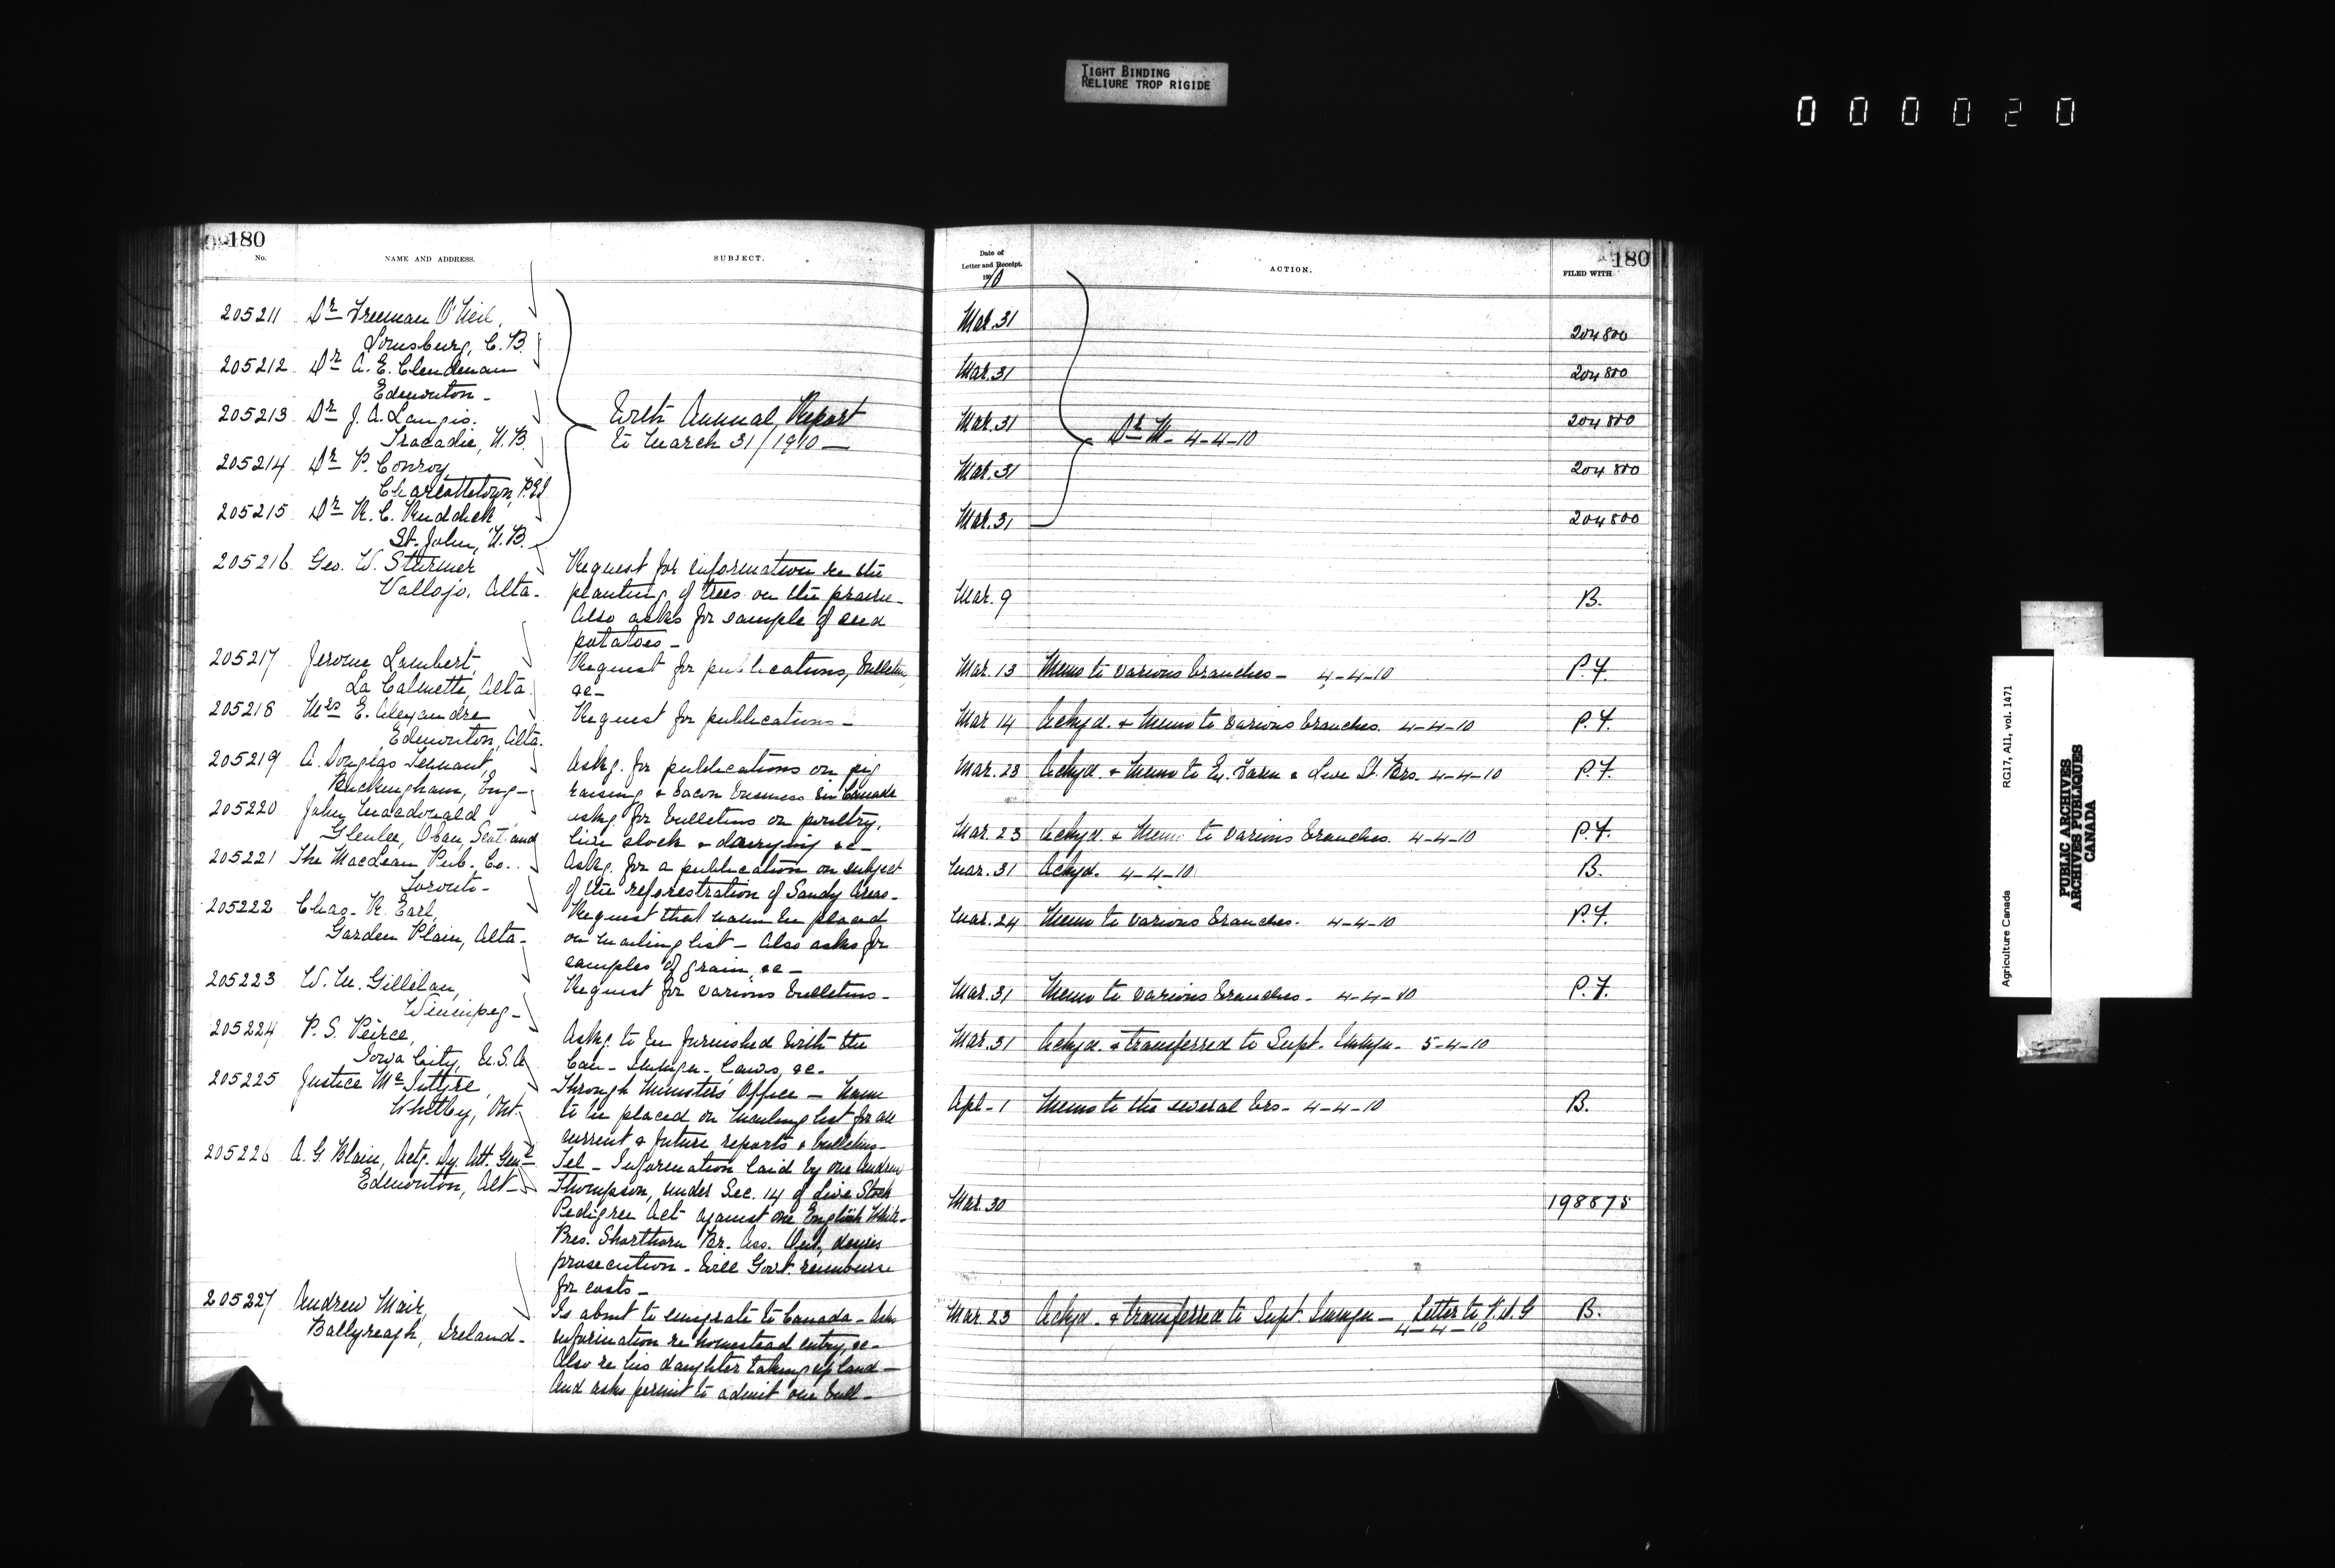 TIGHT BINDING
RELIURE TROP RIGIDE
000020
180
No.
NAME AND ADDRESS.
SUBJECT.
205211 Dr Freeman O'Neil,
Louisburg, C.B.
205212 Dr A. E. Clendenan
Edmonton -
205213 Dr J. A. Langis.
Tracadie, N.B.
205214 Dr P. Conroy,
Charlottetown, P.E.I.
205215 Dr R. C. Ruddick,
St. John, N.B.
With Annual Report
to March 31/1910 -
205216 Geo. W. Sturmer
Vallejo, Alta -
Request for information re the
planting of trees on the prairie -
Also asks for sample of seed
potatoes -
205217 Jerome Lambert,
La Calmette, Alta.
Request for publications, bulletins,
&c -
205218 Mrs E. Alexandre
Edmonton, Alta.
Request for publications -
205219 A. Douglas Tennant,
Buckingham, Eng -
Askg. for publications on pig
raising & bacon business in Canada
205220 John Macdonald
Glenlee, Oban, Scotland
Askg. for bulletins on poultry,
live stock & dairying &c -
205221 The MacLean Pub. Co.
Toronto -
Askg. for a publication on subject
of the reforestration of Sandy Areas -
205222 Chas. R. Earl,
Garden Plain, Alta -
Request that name be placed
on mailing list - Also asks for
samples of grain, &c -
205223 W. M. Gillelan,
Winnipeg -
Request for various bulletins -
205224 P. S. Peirce,
Iowa City, U.S.A
Askg. to be furnished with the
Can - Immign - Laws, &c -
205225 Justice McIntyre,
Whitby, Ont -
Through Minister's Office - Name
to be placed on mailing list for all
current & future reports & bulletins -
205226 A. G. Blair, Actg. Dy. Att. Genl
Edmonton, Alt -
Tel - Information laid by one Andrew
Thompson, under Sec. 14 of Live Stock
Pedigree Act against one English White -
Pres. Shorthorn Br. Ass. desires
prosecution - Will Govt. reimburse
for costs -
205227 Andrew Mair,
Ballyreagh, Ireland -
Is about to emigrate to Canada - Asks
information re homestead entry, &c -
Also re his daughter taking up land -
And asks permit to admit one bull -
Date of
Letter and Receipt.
190/10
ACTION.
FILED WITH
180
Mar. 31 204800
Mar. 31 204800
Mar. 31 Dr M - 4-4-10 204800
Mar. 31 204800
Mar. 31 204800
Mar. 9 B.
Mar. 13 Memo to various branches - 4-4-10 P.F.
Mar 14 Ackgd. & Memo to various branches. 4-4-10 P.F.
Mar. 23 Ackgd. & Memo to Ex. Farm & Live St. Brs. 4-4-10 P.F.
Mar. 23 Ackgd. & Memo to various branches. 4-4-10 P.F.
Mar. 31 Ackgd. 4-4-10 B.
Mar. 24 Memo to various branches. 4-4-10 P.F.
Mar. 31 Memo to various branches - 4-4-10 P.F.
Mar. 31 Ackgd. & transferred to Supt. Immgn - 5-4-10
Apl - 1 Memo to the several brs - 4-4-10 B.
Mar. 30 198875
Mar. 23 Ackgd. & transferred to Supt. Immgn - Letter to V.D.G B.
4-4-10
Agriculture Canada
RG17, AII, vol. 1471
PUBLIC ARCHIVES
ARCHIVES PUBLIQUES
CANADA